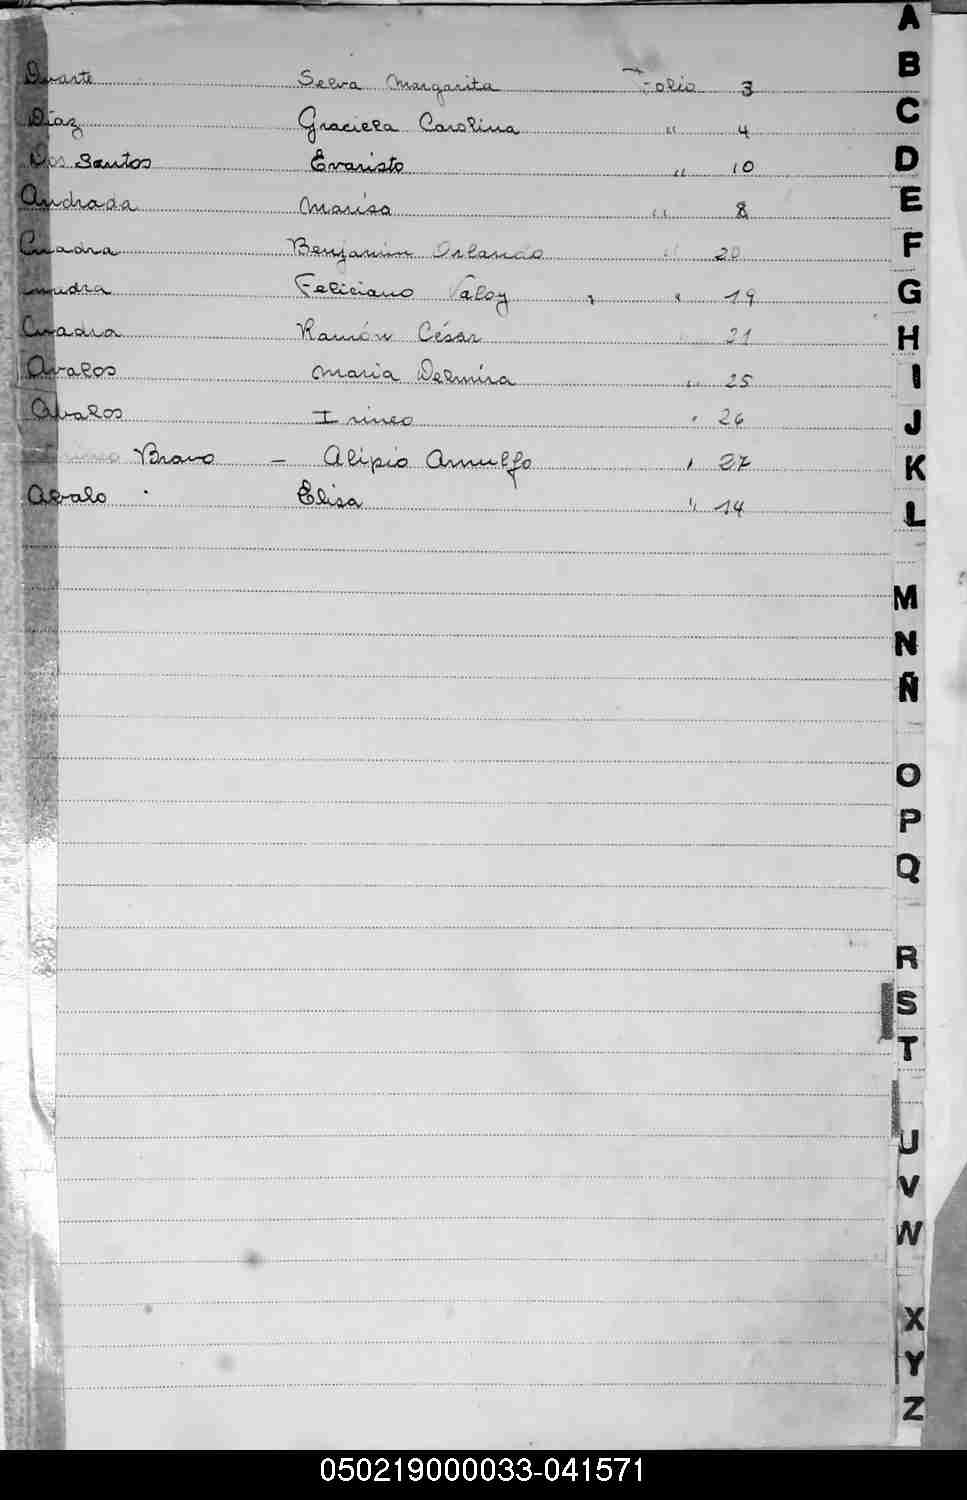 A
B
C
D
E
F
G
H
I
J
K
L
M
N
Ñ
O
P
Q
R
S
T
U
V
W
X
Y
Z
Duarte Selva Margarita Folio 3
Díaz Graciela Carolina " 4
Dos Santos Evaristo " 10
Andrada Marisa " 8
Cuadra Benjamin Orlando " 20
Cuadra Feliciano Valoy " " 19
Cuadra Ramón César 21
Avalos Maria Delmira " 25
Avalos Irineo " 26
Bravo - Alipio Arnulfo " 27
Avalo Elisa " 14
050219000033-041571